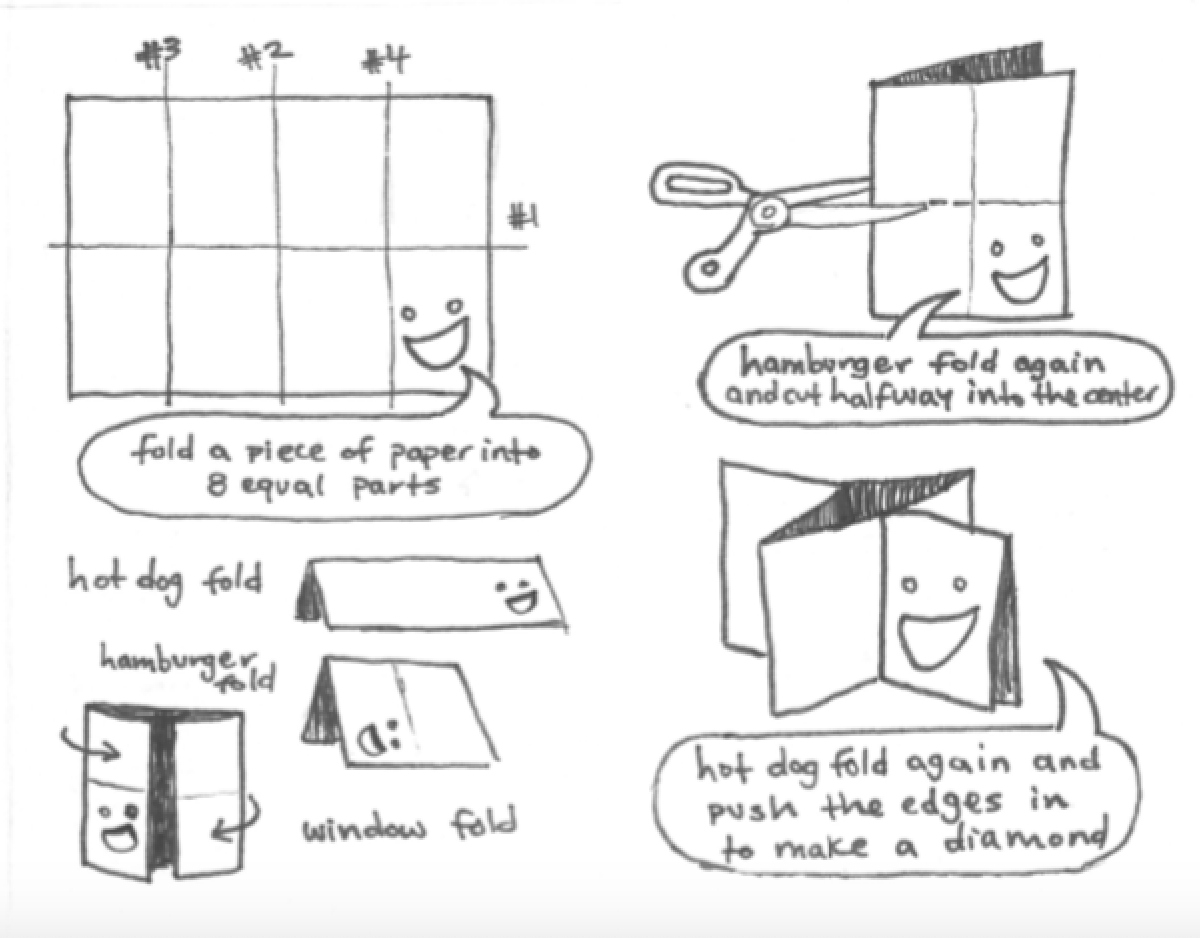 #3 #2 #4
#1
fold a piece of paper into
8 equal parts
hot dog fold
hamburger
fold
window fold
hamburger fold again
and cut halfway into the center
hot dog fold again and
push the edges in
to make a diamond